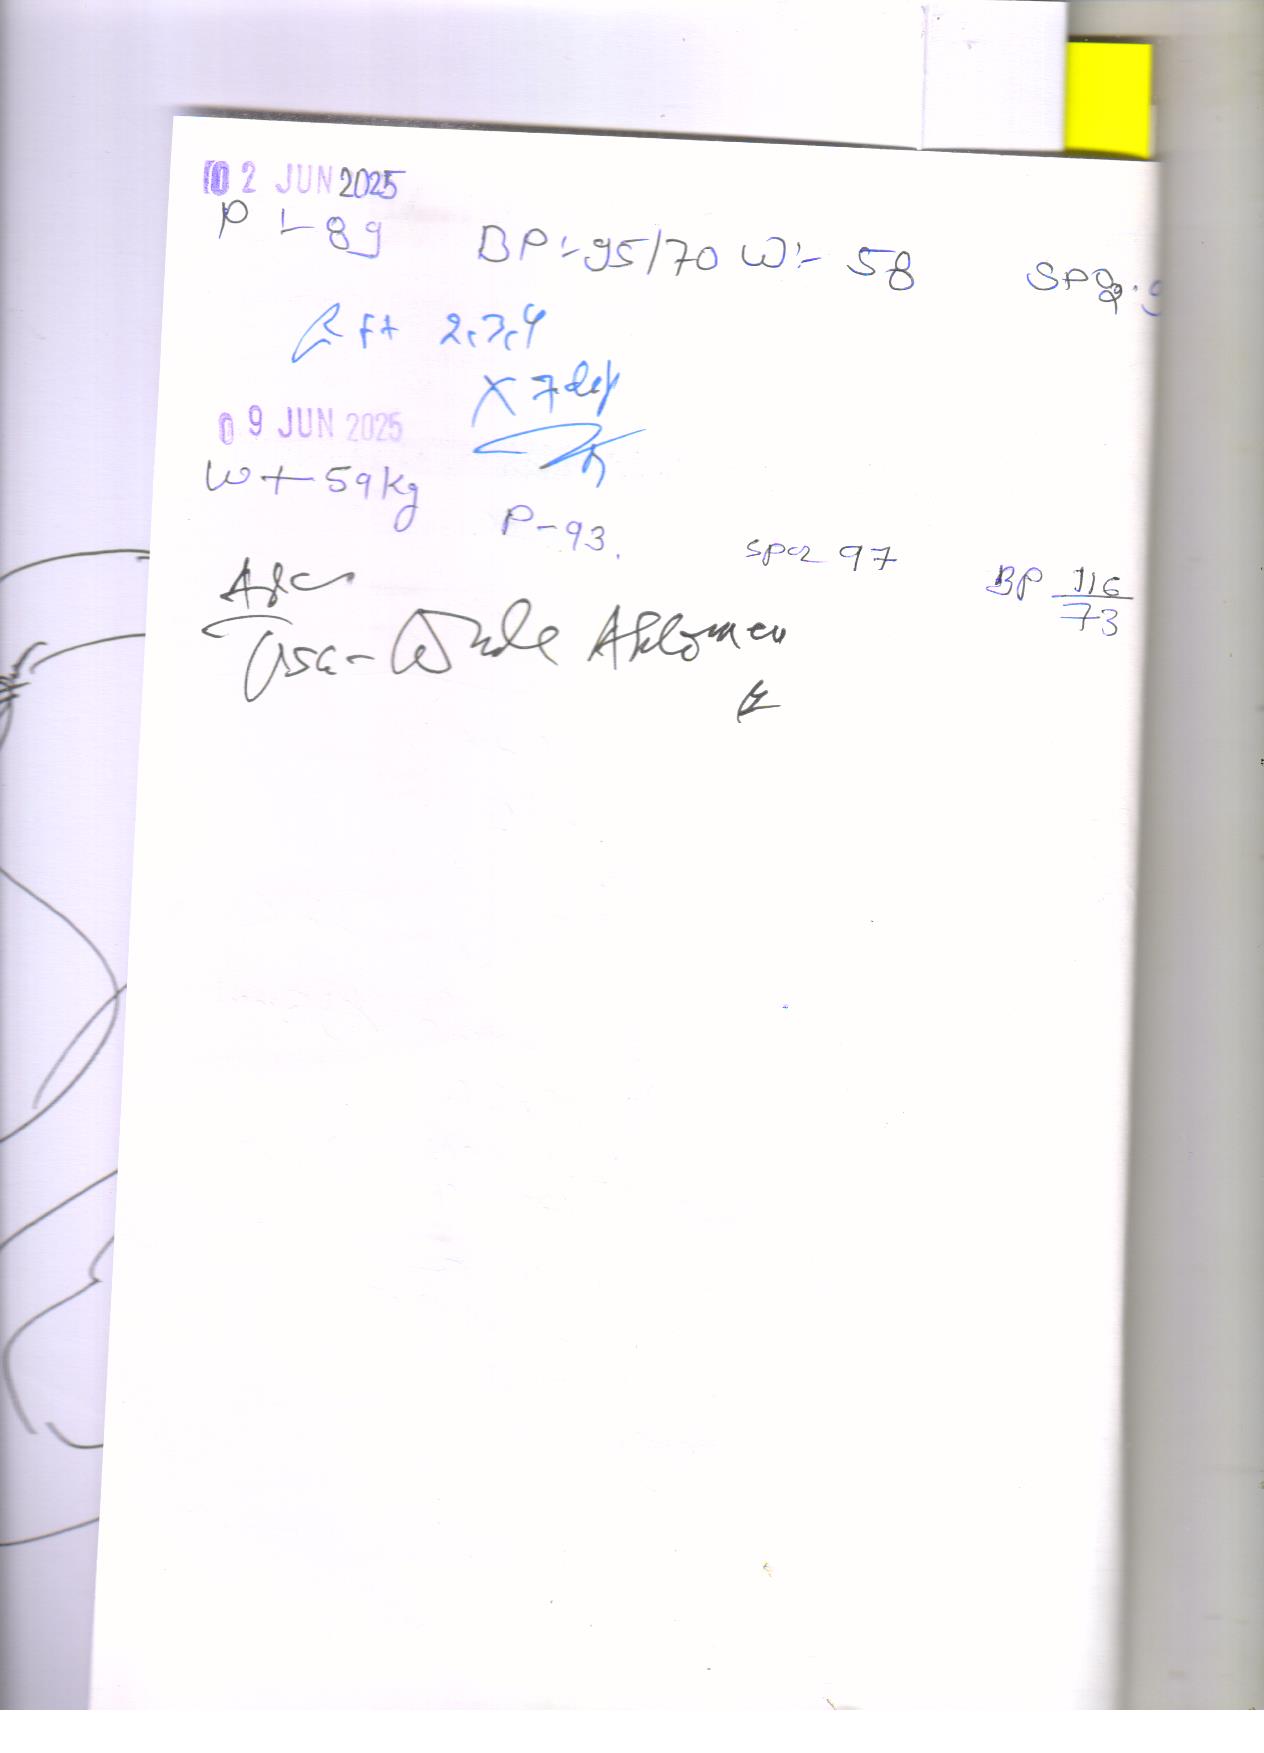 02 JUN 2025
P :- 89 BP :- 95/70 W :- 58 SPO2
Rft 2,3,4
X 7 day
09 JUN 2025
Wt 59kg P-93. SPO2 97 BP 116/73
Adv
USG - Whole Abdomen